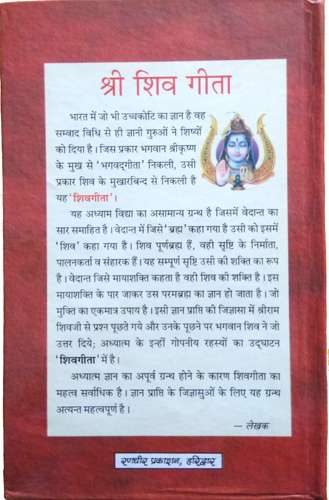 श्री शिव गीता
भारत में जो भी उच्चकोटि का ज्ञान है वह
सम्वाद विधि से ही ज्ञानी गुरुओं ने शिष्यों
को दिया है। जिस प्रकार भगवान श्रीकृष्ण
के मुख से 'भगवद्गीता' निकली, उसी
प्रकार शिव के मुखारबिन्द से निकली है
यह 'शिवगीता'।
यह अध्याम विद्या का असामान्य ग्रन्थ है जिसमें वेदान्त का
सार समाहित है। वेदान्त में जिसे 'ब्रह्म' कहा गया है उसी को इसमें
'शिव' कहा गया है। शिव पूर्णब्रह्म हैं, वही सृष्टि के निर्माता,
पालनकर्ता व संहारक हैं। यह सम्पूर्ण सृष्टि उसी की शक्ति का रूप
है। वेदान्त जिसे मायाशक्ति कहता है वही शिव की शक्ति है। इस
मायाशक्ति के पार जाकर उस परमब्रह्म का ज्ञान हो जाता है। जो
मुक्ति का एकमात्र उपाय है। इसी ज्ञान प्राप्ति की जिज्ञासा में श्रीराम
शिवजी से प्रश्न पूछते गये और उनके पूछने पर भगवान शिव ने जो
उत्तर दिये; अध्यात्म के इन्हीं गोपनीय रहस्यों का उद्घाटन
'शिवगीता' में है।
अध्यात्म ज्ञान का अपूर्व ग्रन्थ होने के कारण शिवगीता का
महत्व सर्वाधिक है। ज्ञान प्राप्ति के जिज्ञासुओं के लिए यह ग्रन्थ
अत्यन्त महत्वपूर्ण है।
— लेखक
रणधीर प्रकाशन, हरिद्वार